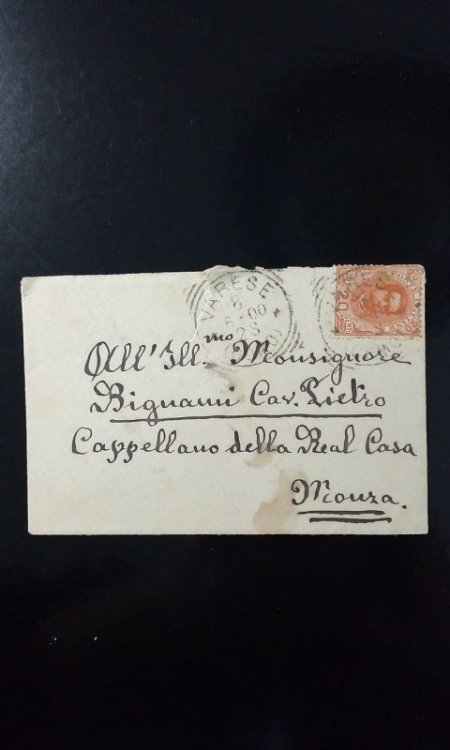 VARESE
6
8-00
23
All'Ill.mo Monsignore
Bignami Cav. Pietro
Cappellano della Real Casa
Monza.